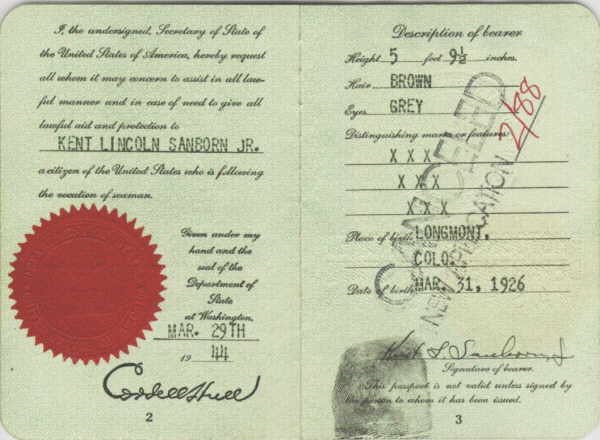 I, the undersigned, Secretary of State of
the United States of America, hereby request
all whom it may concern to assist in all law-
ful manner and in case of need to give all
lawful aid and protection to
KENT LINCOLN SANBORN JR.
a citizen of the United States who is following
the vocation of seaman.
Given under my
hand and the
seal of the
Department of
State
at Washington,
MAR. 29TH
19 44
Cordell Hull
2
Description of bearer
Height 5 feet 9½ inches.
Hair BROWN
Eyes GREY
Distinguishing marks or features:
X X X
X X X
X X X
Place of birth LONGMONT,
COLO.
Date of birth MAR. 31, 1926
CANCELLED
NEW APPLICATION
2/88
Kent L Sanborn Jr
Signature of bearer.
This passport is not valid unless signed by
the person to whom it has been issued.
3